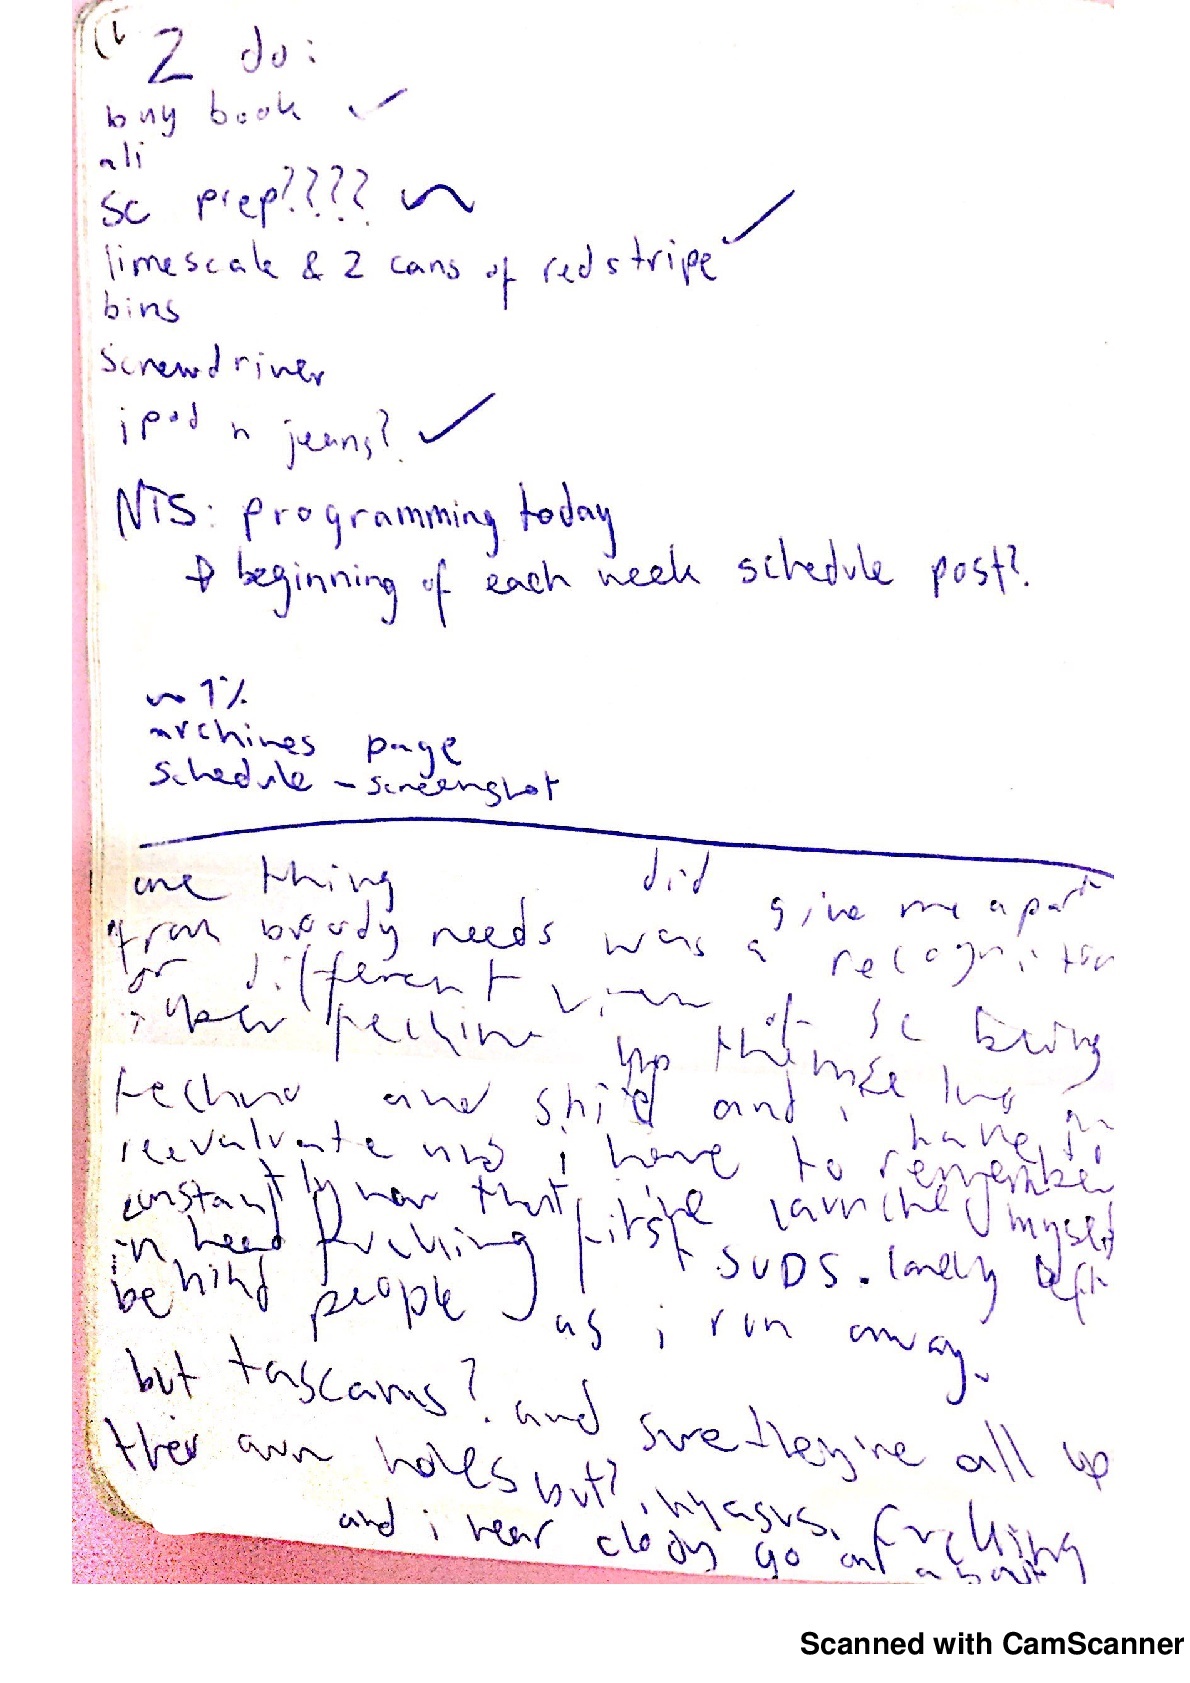 2 do:
buy book ✓
ali
sc prep???? ~
limescale & 2 cans of redstripe ✓
bins
screwdriver
ipod n jeans? ✓
NTS: programming today
→ beginning of each week schedule post?
~ 1%
archives page
schedule - screenshot
one thing did give me apart
from needs was a recognition
or different view of sc being
up their
techno and and i have
reevaluate i have to remember
constantly now that first launched myself
in head fucking first SUDS. lonely left
behind people as i run away.
but tascams? and sure they're all up
their own holes but? fucking
and i hear go on about
Scanned with CamScanner